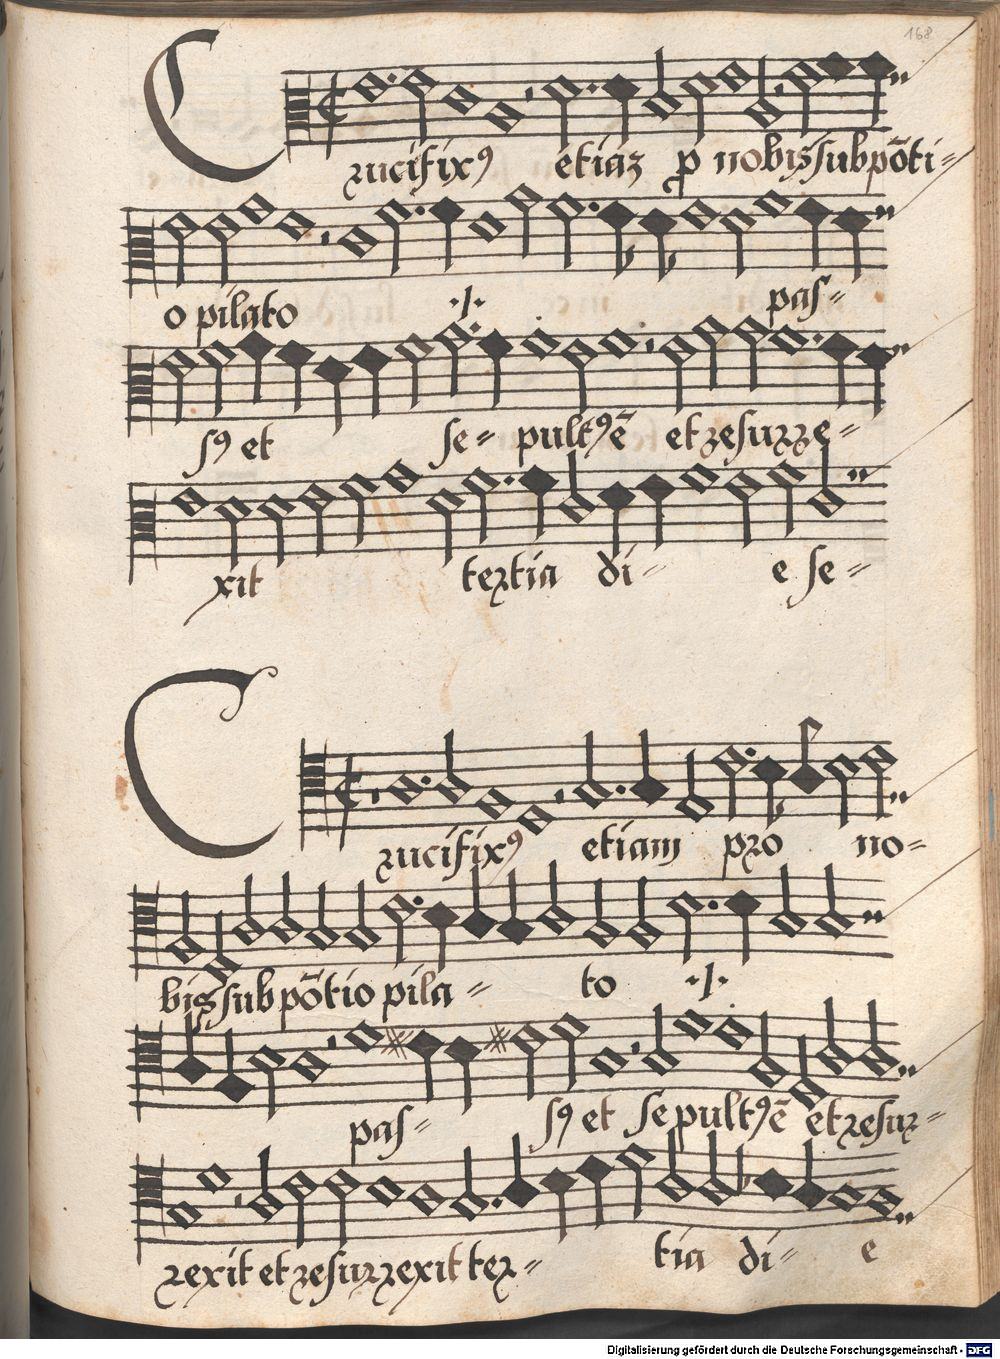 168
Crucifixꝰ etiaz ꝓ nobis sub põti-
o pilato ·/· pas-
sꝰ et se- pultꝰ ē et resurre-
xit tertia di- e se-
Crucifixꝰ etiam pro no-
bis sub põtio pila- to ·/·
pas- sꝰ et sepultꝰ ē et resur-
rexit et resurrexit ter- tia di- e
Digitalisierung gefördert durch die Deutsche Forschungsgemeinschaft - DFG